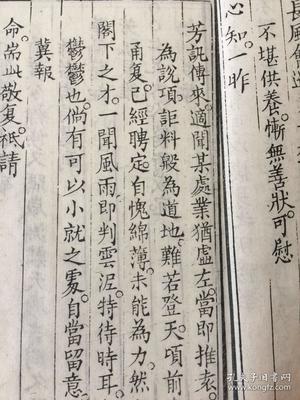 長風
不堪供養。慚無善狀可慰
心知。一昨
芳訊傳來。適聞某處業猶虛左。當即推袁。
為說項。詎料般為道地。難若登天。項前
甬复。已經聘定。自愧綿薄。未能為力。然
閣下之才。一聞風雨即判雲泥。特待時耳。
鬱鬱也。倘有可以小就之處。自當留意
冀報
命。耑此敬复。祗請